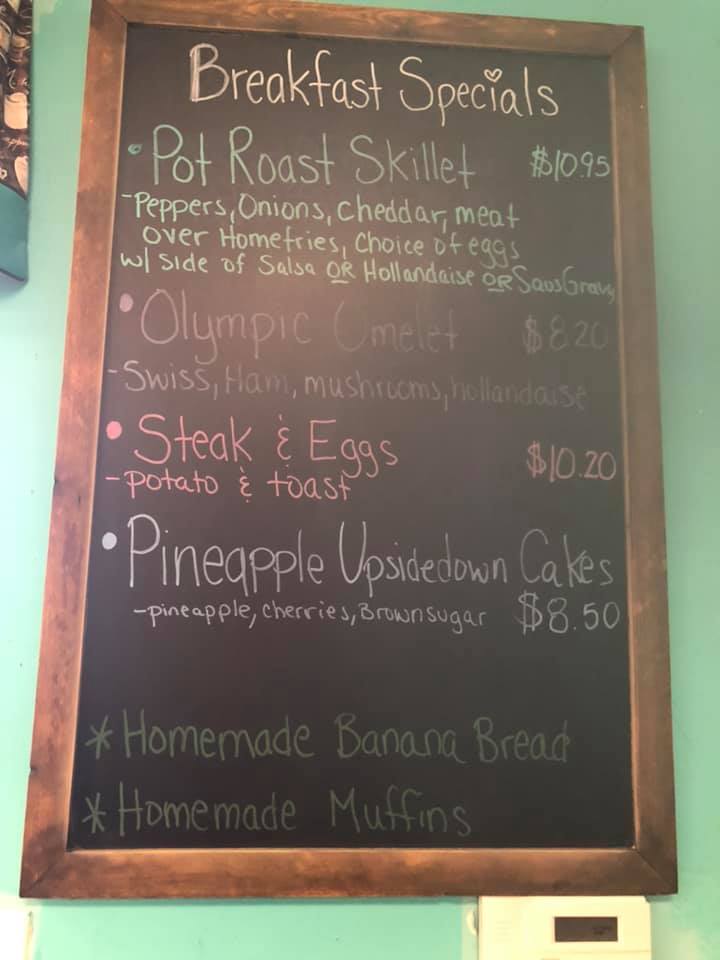 Breakfast Specials
• Pot Roast Skillet $10.95
- Peppers, Onions, Cheddar, meat
over Homefries, Choice of eggs
w/ Side of Salsa OR Hollandaise OR Saus Gravy
• Olympic Omelet $8.20
- Swiss, Ham, mushrooms, hollandaise
• Steak & Eggs $10.20
- potato & toast
• Pineapple Upsidedown Cakes
- pineapple, cherries, Brown sugar $8.50
* Homemade Banana Bread
* Homemade Muffins